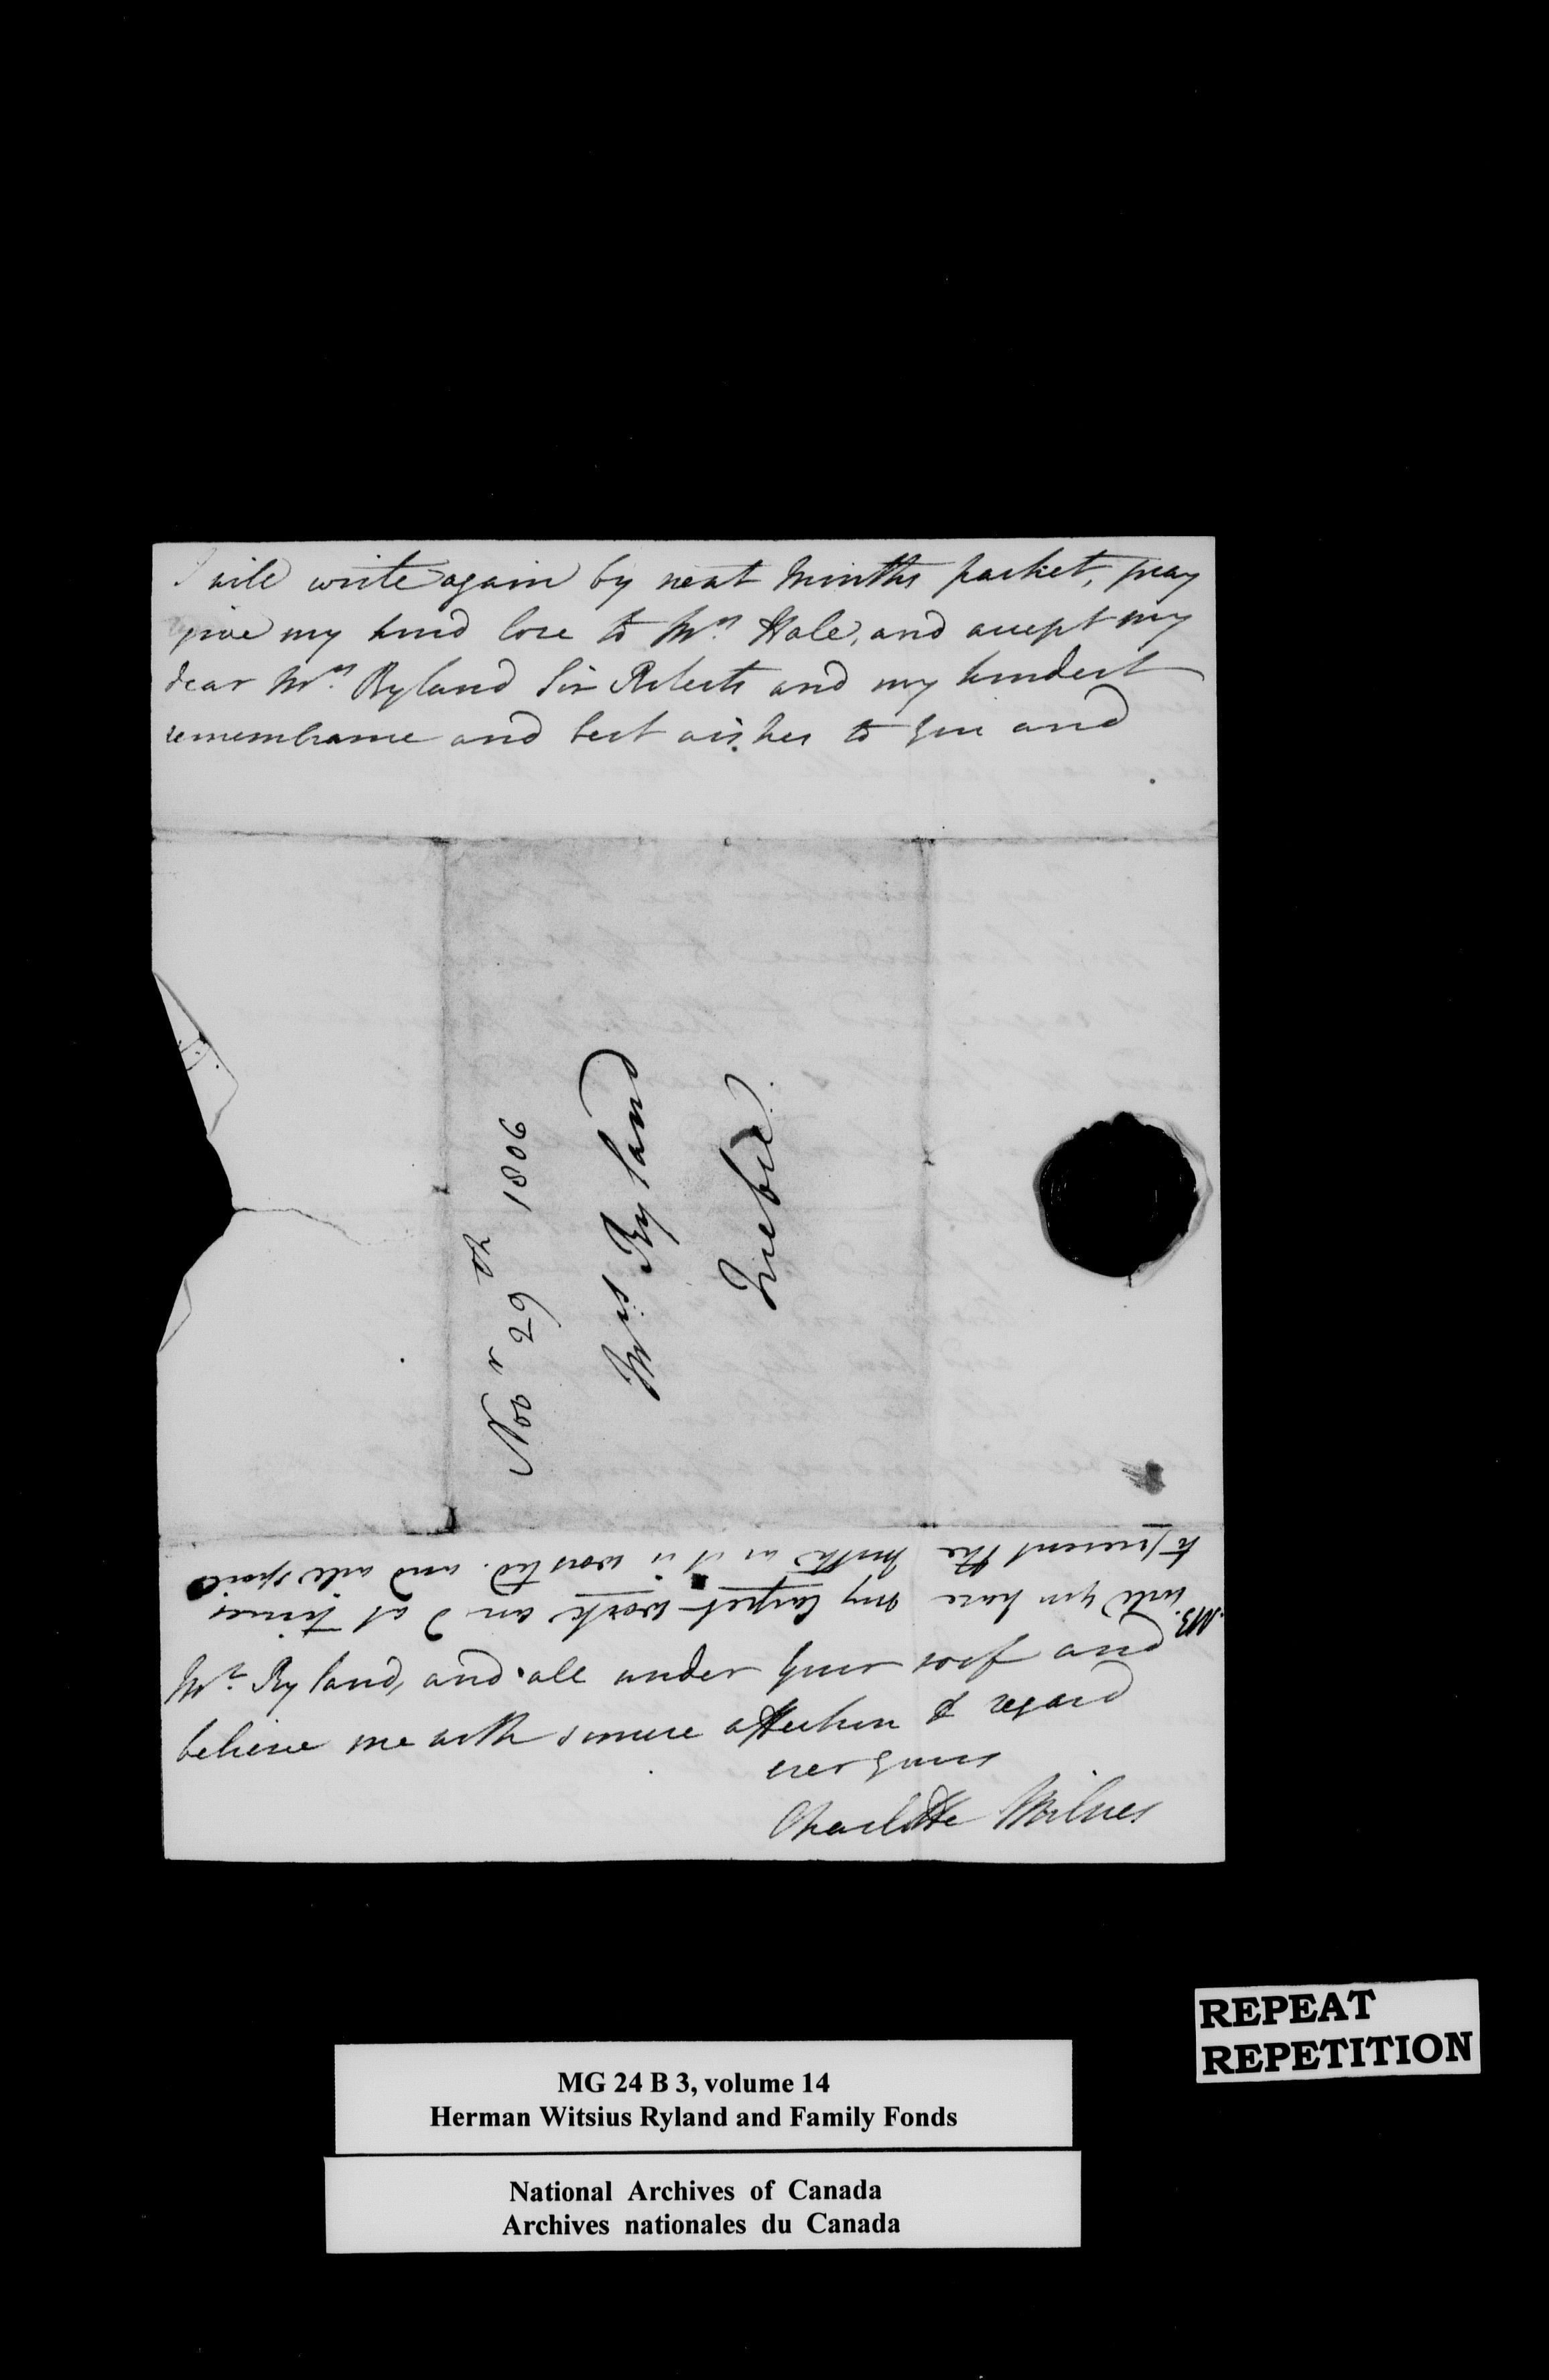 I will write again by next Months packet, pray
give my kind love to Mrs. Hale, and accept my
dear Mrs. Ryland Sir Roberts and my kindest
remembrance and best wishes to you and
Novr 29th 1806
Mrs. Ryland
Quebec.
Mr. Ryland, and all under your roof and
believe me with sincere affection & regard
ever yours
Charlotte Milnes
NB. will you have my Carpet work air'd at times
to prevent the Moths as it is worsted. and will spoil
REPEAT
REPETITION
MG 24 B 3, volume 14
Herman Witsius Ryland and Family Fonds
National Archives of Canada
Archives nationales du Canada